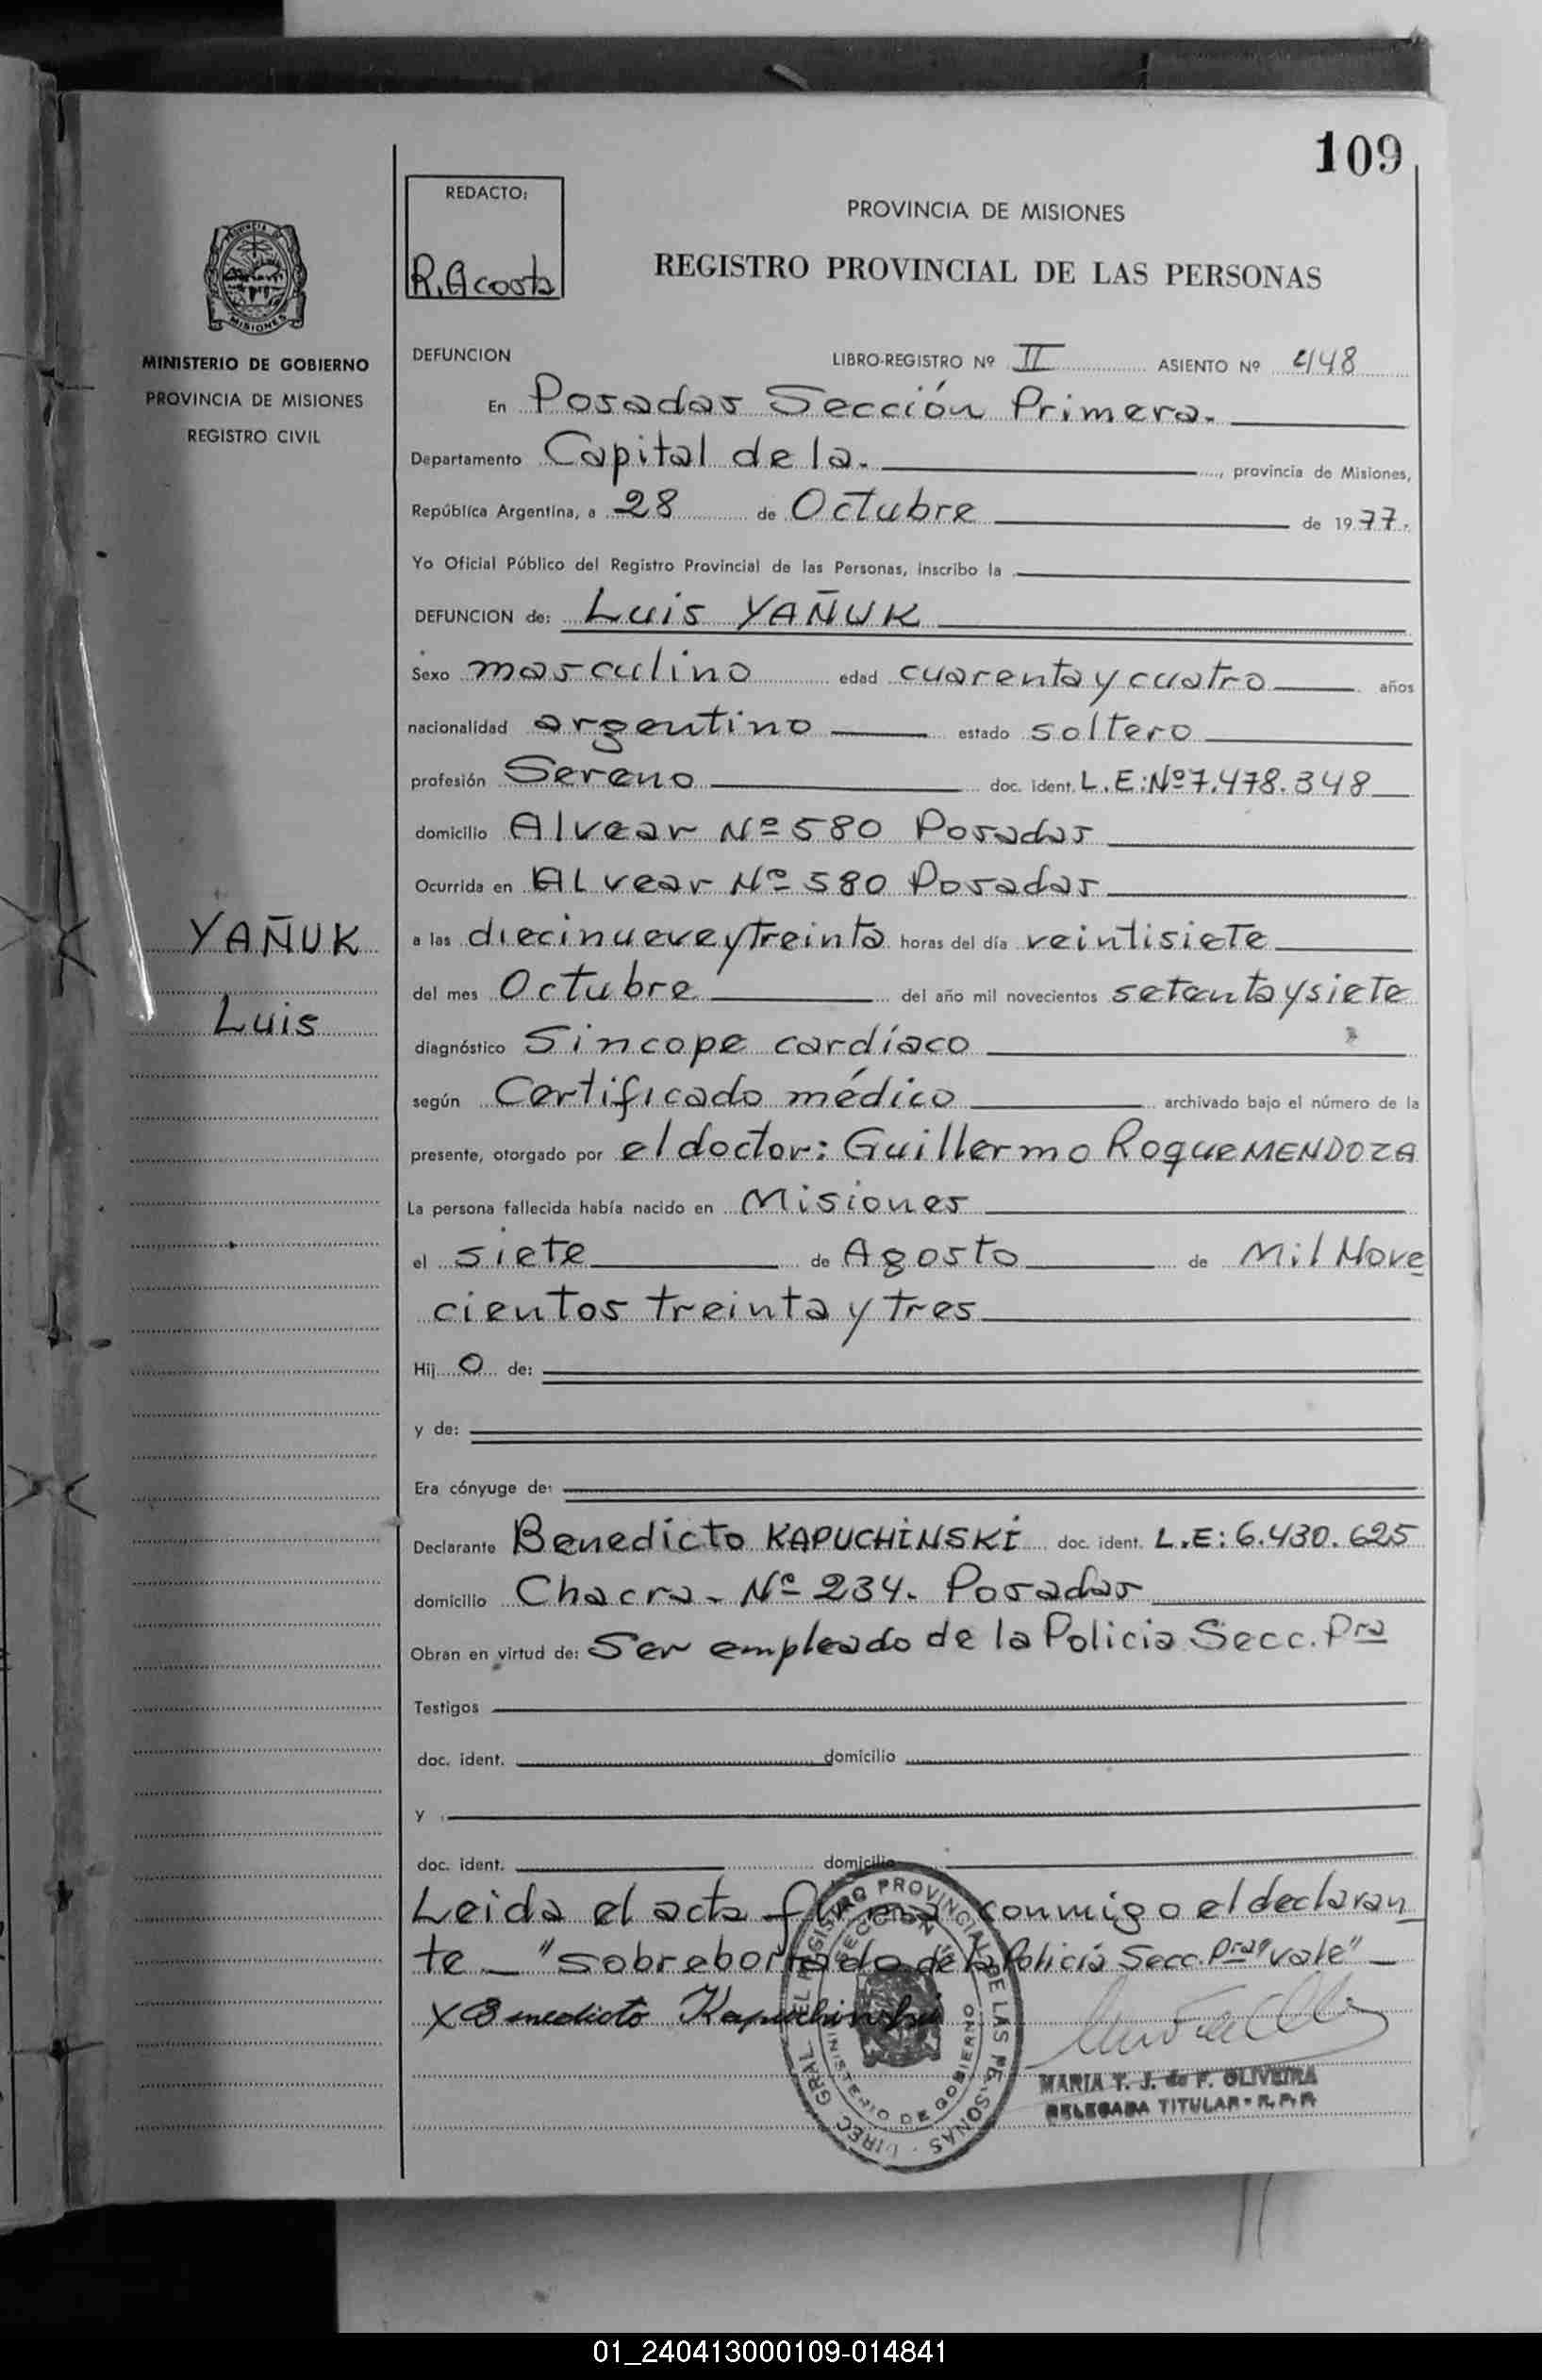 109
REDACTO:
R. Acosta
PROVINCIA DE MISIONES
REGISTRO PROVINCIAL DE LAS PERSONAS
MISIONES
MINISTERIO DE GOBIERNO
PROVINCIA DE MISIONES
REGISTRO CIVIL
DEFUNCION LIBRO-REGISTRO Nº II ASIENTO Nº 448
En Posadas Sección Primera.
Departamento Capital de la. provincia de Misiones,
República Argentina, a 28 de Octubre de 1977.
Yo Oficial Público del Registro Provincial de las Personas, inscribo la
DEFUNCION de: Luis YAÑUK
Sexo masculino edad cuarenta y cuatro años
nacionalidad argentino estado soltero
profesión Sereno doc. ident. L.E:Nº7.478.348
domicilio Alvear Nº 580 Posadas
Ocurrida en ALvear Nº 580 Posadas
YAÑUK
Luis
a las diecinueve y treinta horas del día veintisiete
del mes Octubre del año mil novecientos setenta y siete
diagnóstico Sincope cardíaco
según Certificado médico archivado bajo el número de la
presente, otorgado por el doctor: Guillermo Roque MENDOZA
La persona fallecida había nacido en Misiones
el siete de Agosto de Mil Nove
cientos treinta y tres
Hij o de:
y de:
Era cónyuge de:
Declarante Benedicto KAPUCHINSKI doc. ident. L.E: 6.430.625
domicilio Chacra - Nº 234. Posadas
Obran en virtud de: Ser empleado de la Policia Secc. Pra
Testigos
doc. ident. domicilio
y
doc. ident. domicilio
Leida el acta firma conmigo el declaran
te - "sobreborrado de la Policia Secc. Pra" vale" -
X Benedicto Kapuchinski
DIREC. GRAL. EL REGISTRO PROVINCIAL DE LAS PERSONAS
SECCION
MINISTERIO DE GOBIERNO
MARIA T. J. de F. OLIVEIRA
DELEGADA TITULAR - R.P.P.
01_240413000109-014841